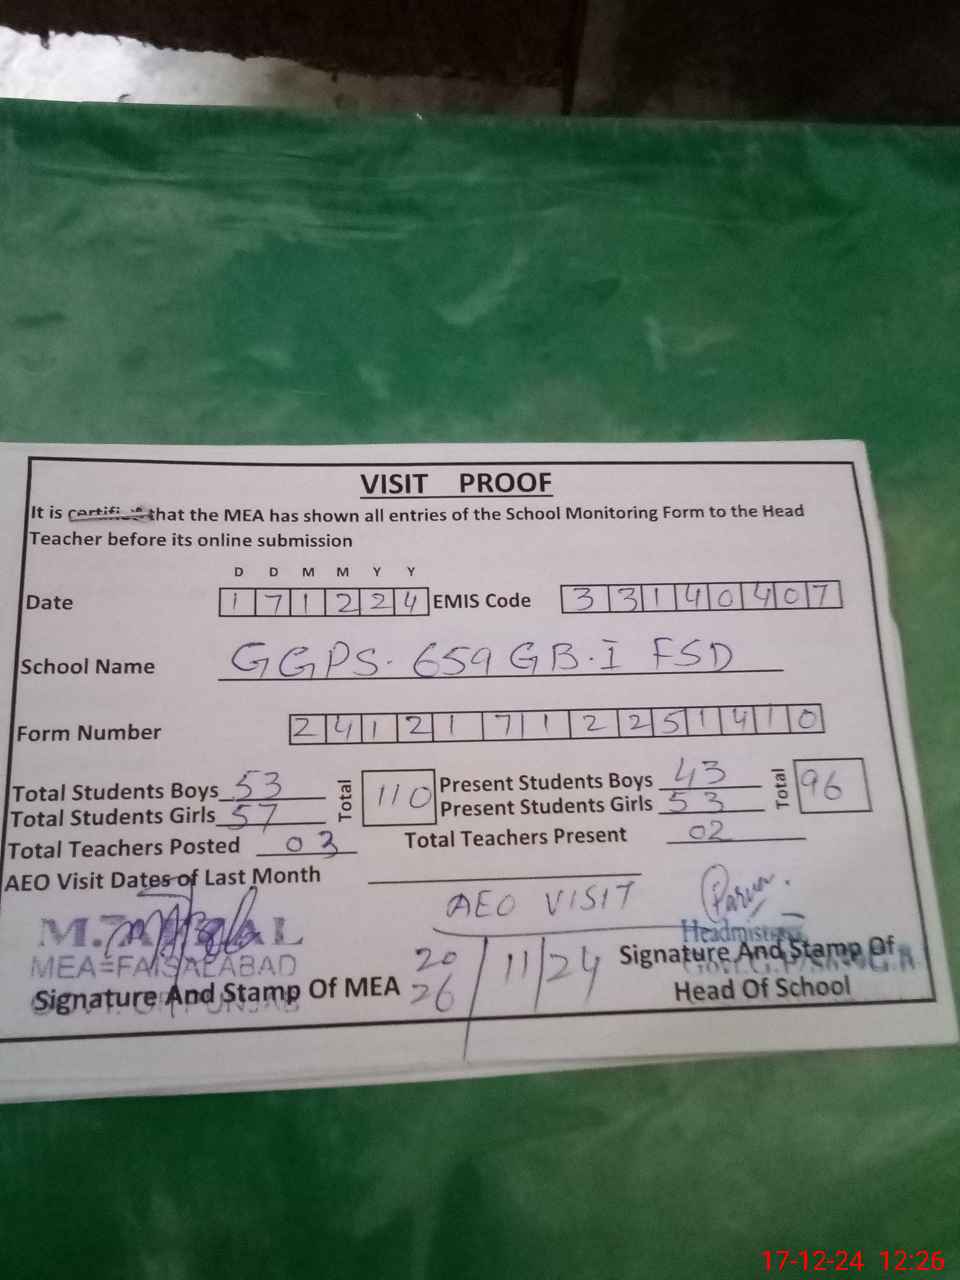 VISIT PROOF
It is certified that the MEA has shown all entries of the School Monitoring Form to the Head
Teacher before its online submission
D D M M Y Y
Date 1 7 1 2 2 4 EMIS Code 3 3 1 4 0 4 0 7
School Name GGPS. 659 GB.I FSD
Form Number 2 4 1 2 1 7 1 2 2 5 1 4 1 0
Total Students Boys 53 Total 110 Present Students Boys 43 Total 96
Total Students Girls 57 Present Students Girls 53
Total Teachers Posted 03 Total Teachers Present 02
AEO Visit Dates of Last Month
AEO VISIT
20
26 /11/24
MEA=FAISALABAD
Signature And Stamp Of MEA
Signature And Stamp Of
Head Of School
17-12-24 12:26